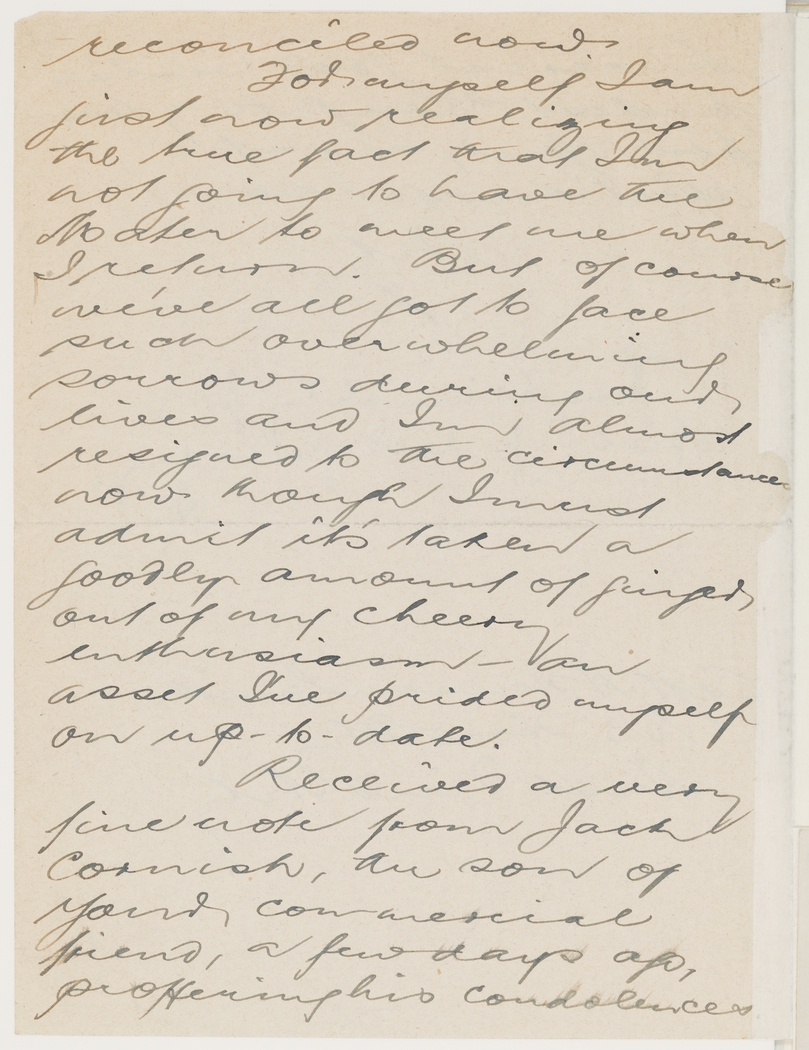 reconciled now.
For myself, I am
just now realizing
the true fact that I'm
not going to have the
Mater to meet me when
I return. But of course
we've all got to face
such overwhelming
sorrows during our
lives and I'm almost
resigned to the circumstances
now though I must
admit it's taken a
goodly amount of ginger
out of my cheery
enthusiasm – an
asset I've prided myself
on up-to-date.
Received a very
fine note from Jack
Cornish, the son of
your commercial
friend, a few days ago,
proffering his condolences